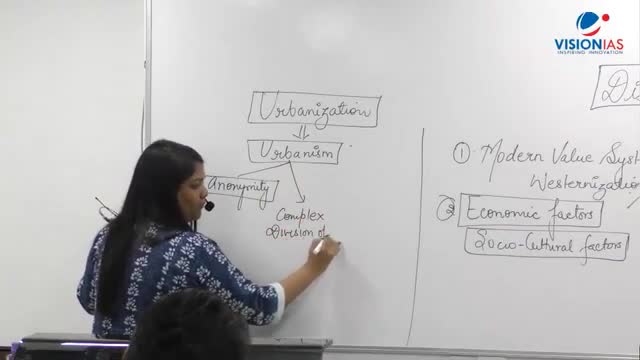 VISIONIAS
INSPIRING INNOVATION
Urbanization
Urbanism
Anonymity
Complex
Division of
① Modern Value
Westernization
② Economic factors
Socio-Cultural factors